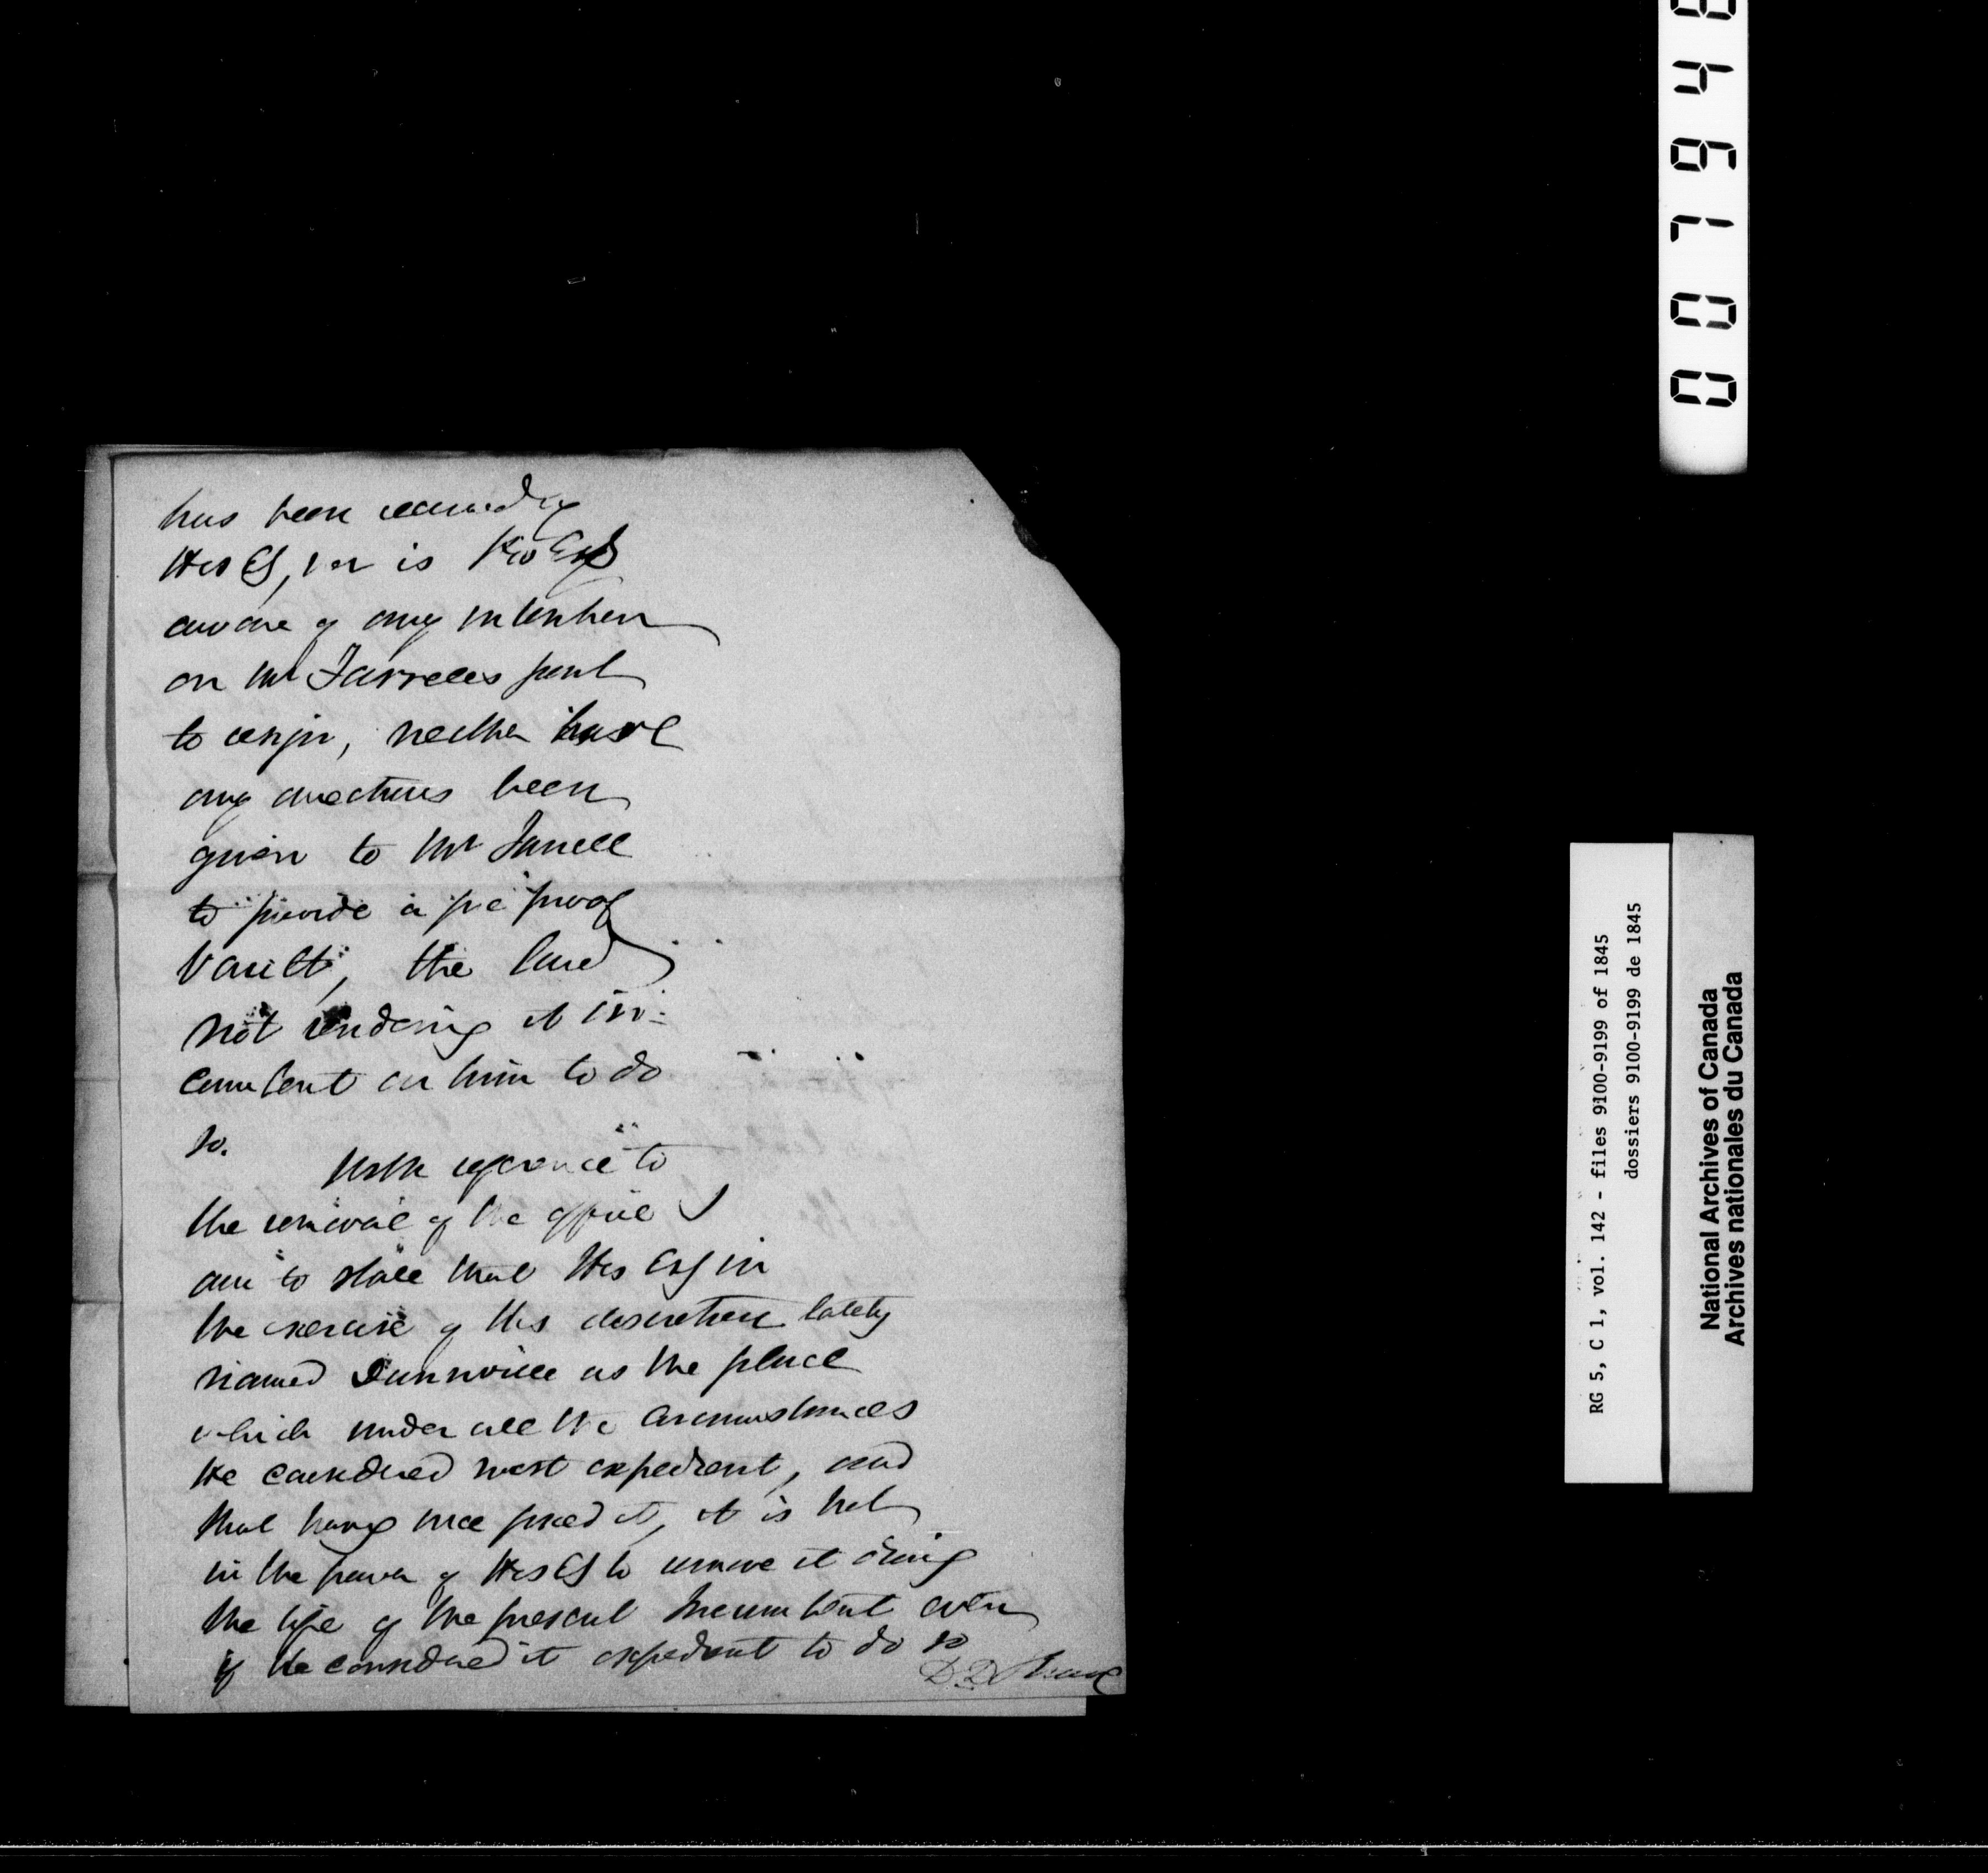 has been received by
His Ex, nor is His Ex
aware of any intention
on Mr Farrells part
to resign, neither have
any directions been
given to Mr Farrell
to provide a fire proof
Vault, the law
not rendering it in-
cumbent on him to do
so.
With reference to
the removal of the office I
am to state that His Ex in
the exercise of His discretion lately
named Dunnville as the place
which under all the circumstances
He considered most expedient, and
that having once fixed it, it is not
in the power of His Ex to remove it during
the life of the present Incumbent even
if He considered it expedient to do so
D. D.
RG 5, C 1, vol. 142 - files 9100-9199 of 1845
dossiers 9100-9199 de 1845
National Archives of Canada
Archives nationales du Canada